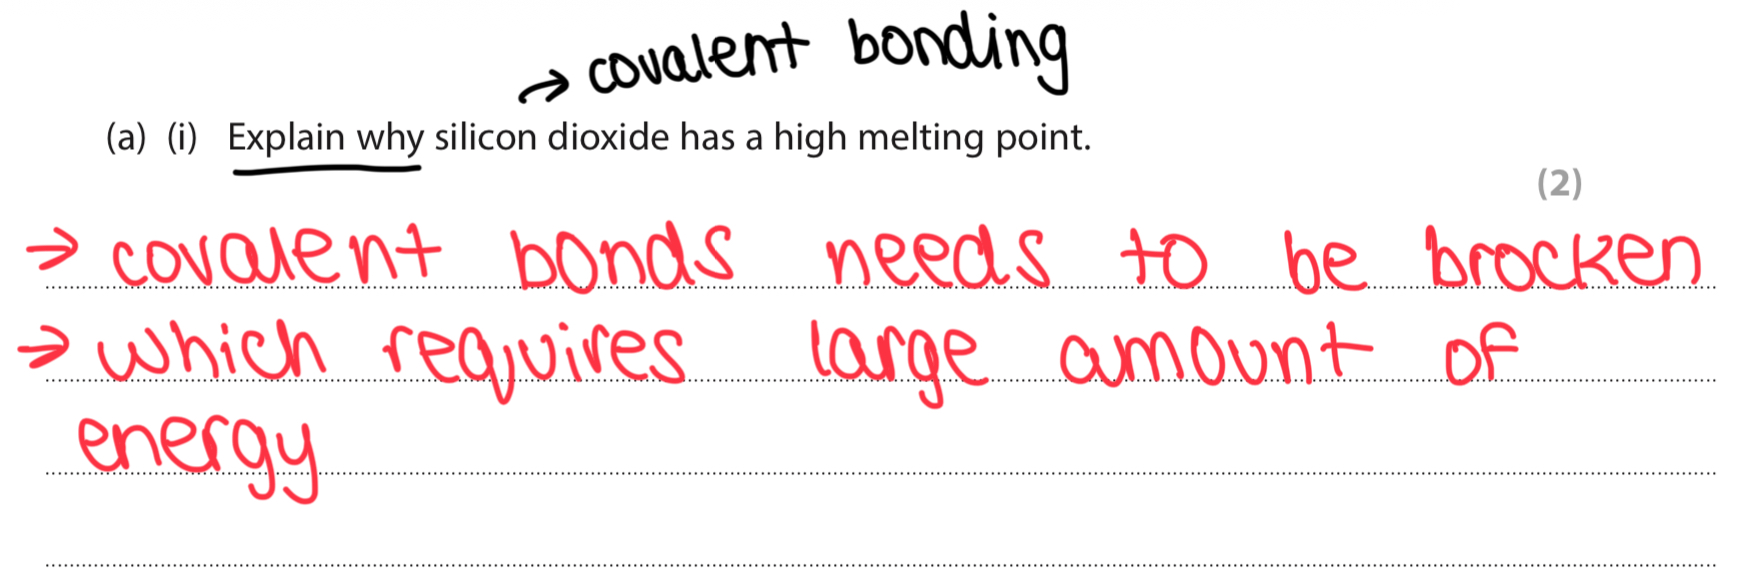 → covalent bonding
(a) (i) Explain why silicon dioxide has a high melting point.
(2)
→ covalent bonds needs to be brocken
→ which requires large amount of
energy